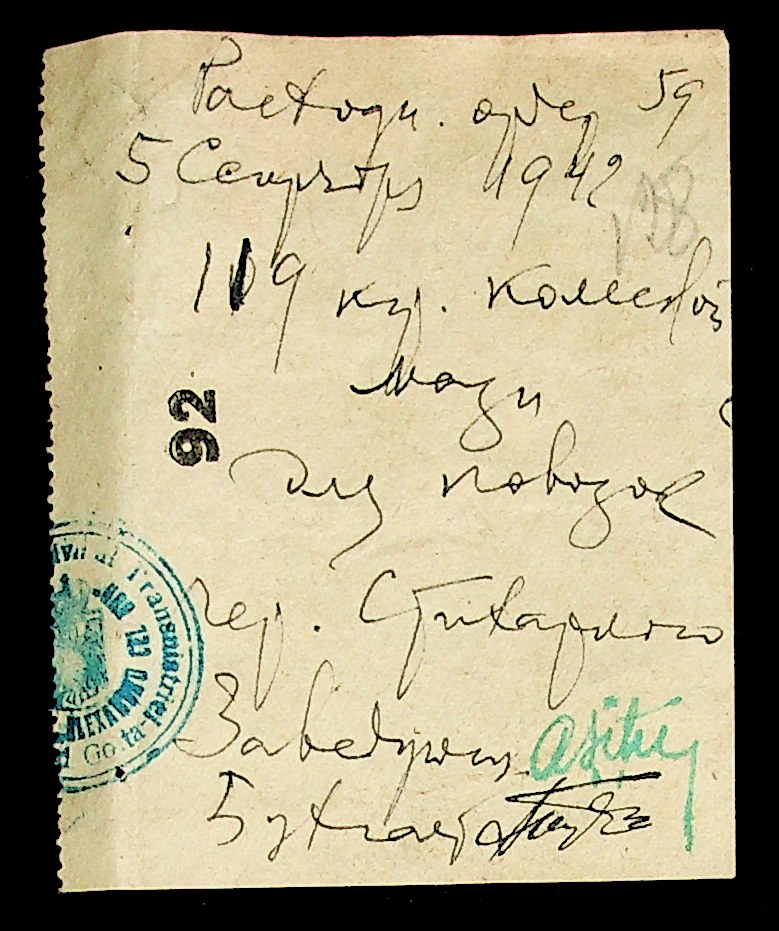 Расходн. ордер 59
5 Сентября 1942
138
119 кгр. колесной
мази
для повозок
92
чер. Стихарного
Заведующ.
Бухгалт
Transnistriei